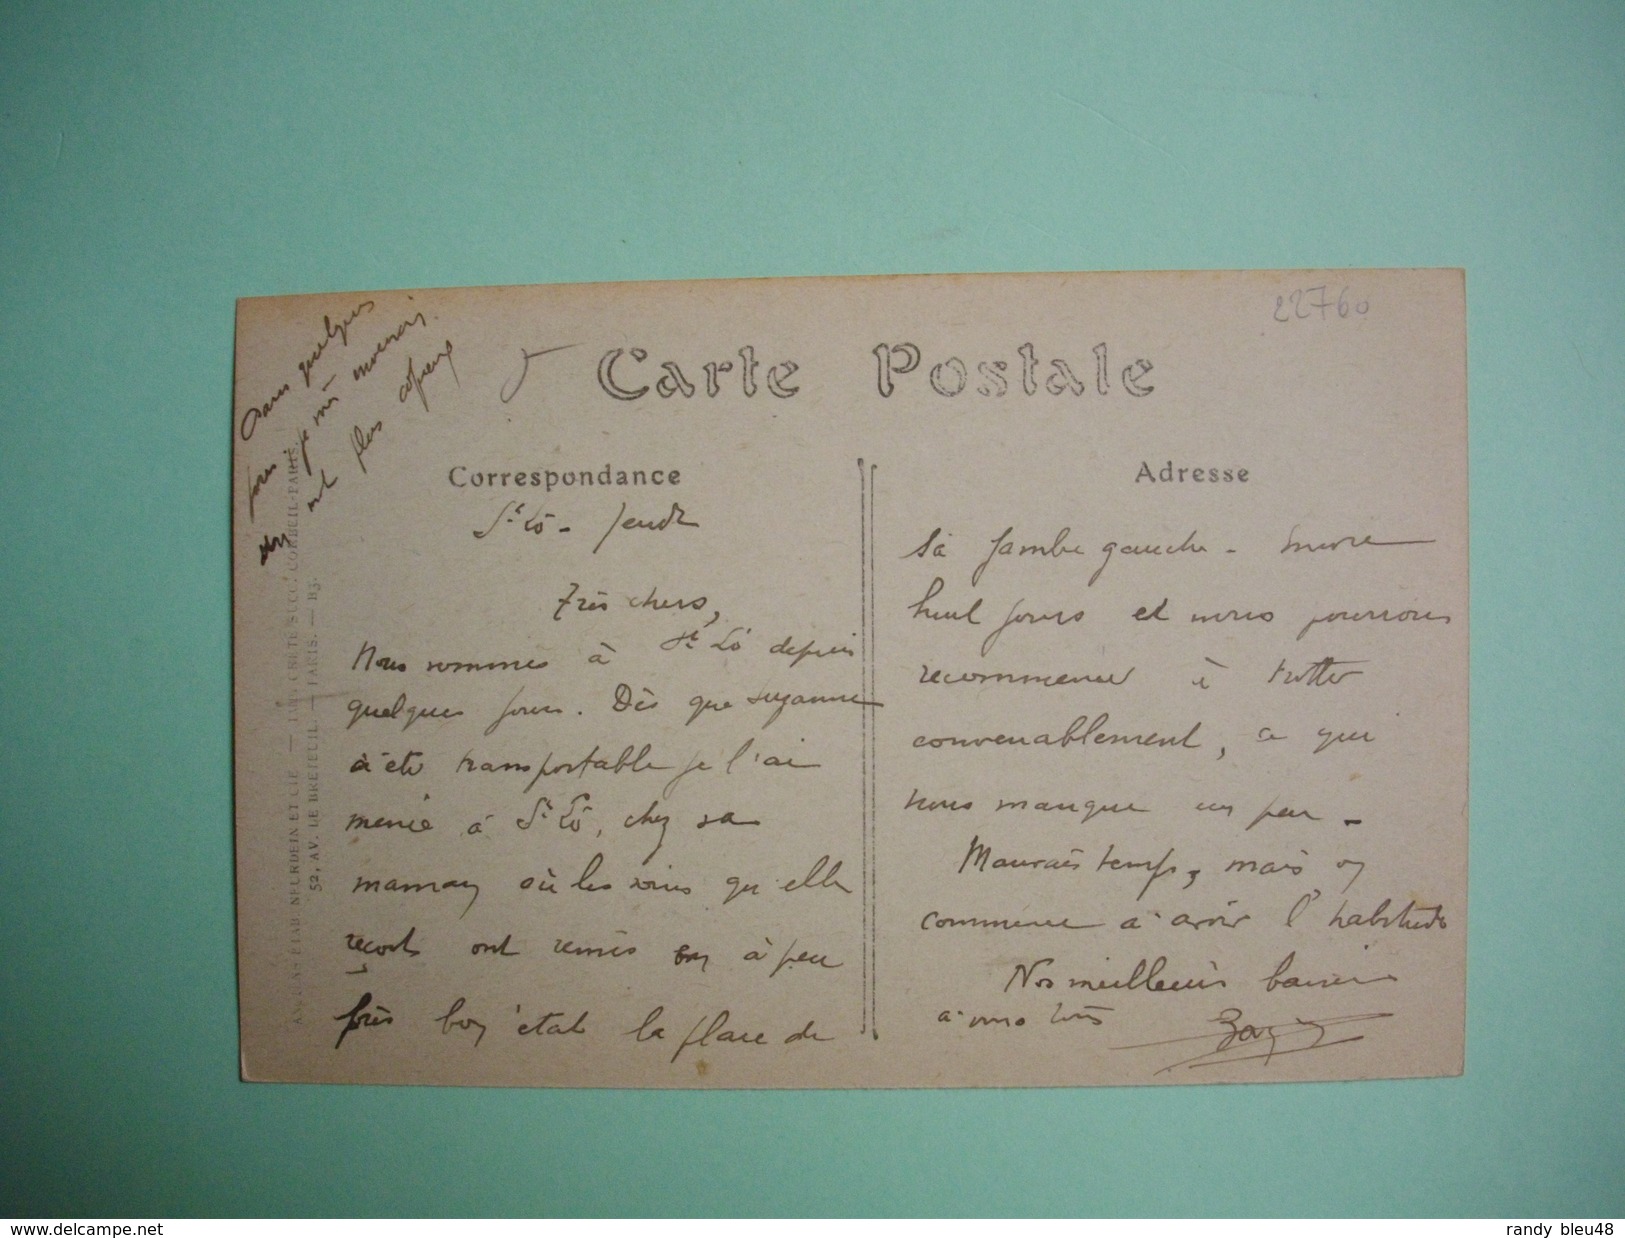 22760
Carte Postale
Correspondance
Adresse
St Lô - Jeudi
Très chers,
Nous sommes à St Lô depuis
quelques jours. Dès que Suzanne
a été transportable je l'ai
menée à St Lô, chez sa
maman où les soins qu'elle
reçoit ont remis en à peu
près bon état la place de
sa jambe gauche - Encore
huit jours et nous pourrons
recommencer à trotter
convenablement, ce qui
nous manque un peu -
Mauvais temps, mais on
commence à avoir l'habitude
Nos meilleurs baisers
à vous tous
Dans quelques
jours je
plus copieux
ANCIENS ETAB. NEURDEIN ET CIE. — IMP. CRÉTÉ SUCC. CORBEIL-PARIS.
52, AV. DE BRETEUIL. — PARIS. — B3.
www.delcampe.net
randy_bleu48